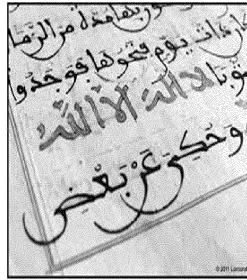 مدة من الزما
ذات يوم فتحوها فوجدوا
لا اله الا الله
وحكي عن بعض
© 2011